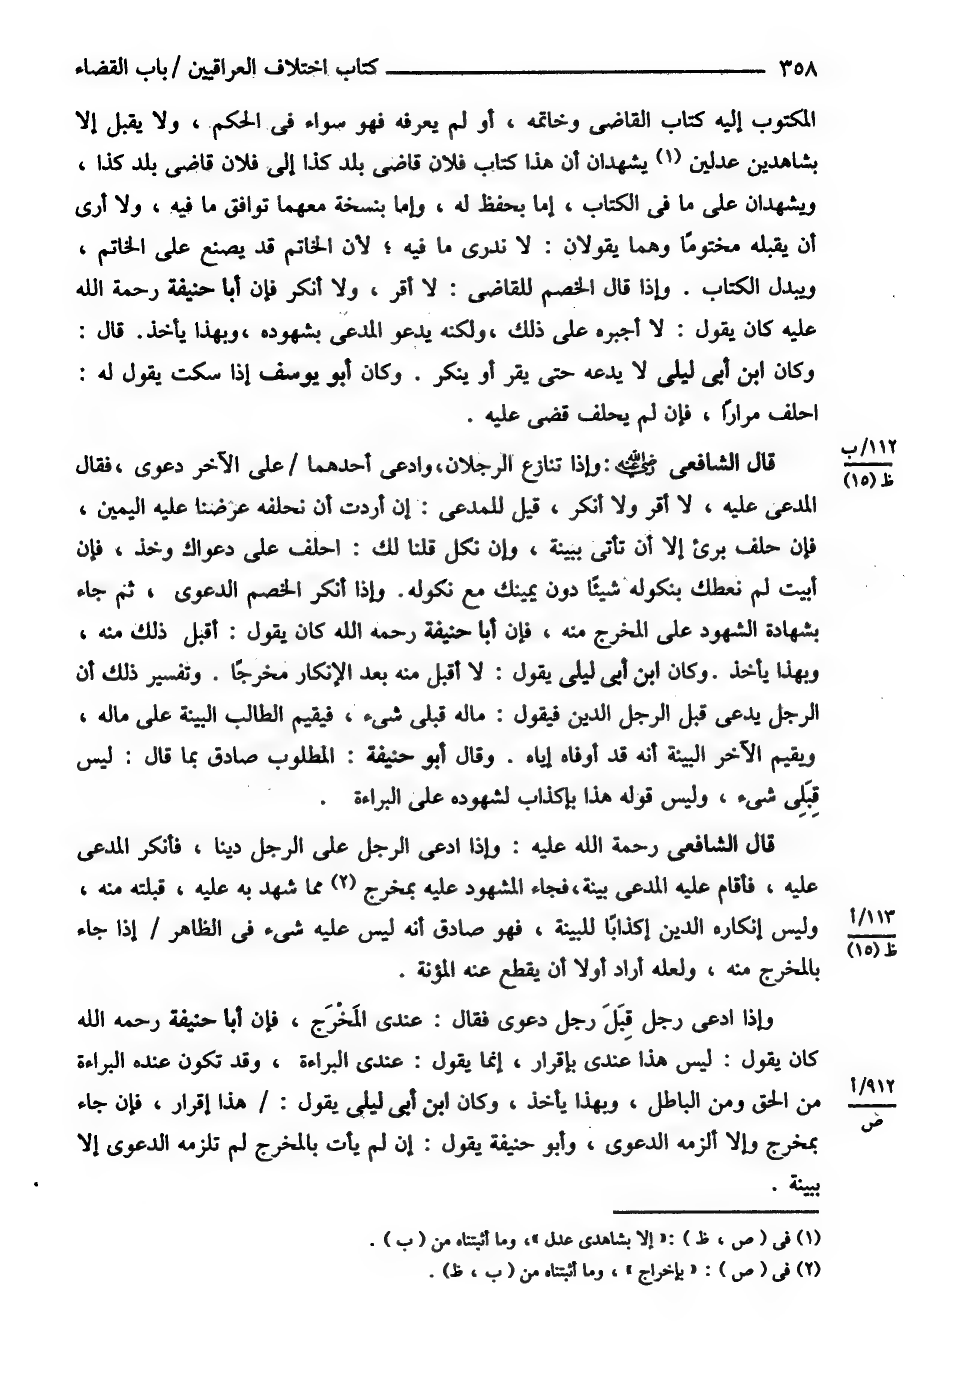 ٣٥٨ ـــــــــــــــــــــــــــــــ كتاب اختلاف العراقيين / باب القضاء
المكتوب إليه كتاب القاضى وخاتمه ، أو لم يعرفه فهو سواء فى الحكم ، ولا يقبل إلا
بشاهدين عدلين (١) يشهدان أن هذا كتاب فلان قاضى بلد كذا إلى فلان قاضى بلد كذا ،
ويشهدان على ما فى الكتاب ، إما بحفظ له ، وإما بنسخة معهما توافق ما فيه ، ولا أرى
أن يقبله مختومًا وهما يقولان : لا ندرى ما فيه ؛ لأن الخاتم قد يصنع على الخاتم ،
ويبدل الكتاب . وإذا قال الخصم للقاضى : لا أقر ، ولا أنكر فإن أبا حنيفة رحمة الله
عليه كان يقول : لا أجبره على ذلك ،ولكنه يدعو المدعى بشهوده ،وبهذا يأخذ. قال :
وكان ابن أبى ليلى لا يدعه حتى يقر أو ينكر . وكان أبو يوسف إذا سكت يقول له :
احلف مرارًا ، فإن لم يحلف قضى عليه .
قال الشافعى رضي الله عنه :وإذا تنازع الرجلان،وادعى أحدهما /على الآخر دعوى ،فقال
١١٢/ب
ظ (١٥)
المدعى عليه ، لا أقر ولا أنكر ، قيل للمدعى : إن أردت أن نحلفه عرضنا عليه اليمين ،
فإن حلف برئ إلا أن تأتى ببينة ، وإن نكل قلنا لك : احلف على دعواك وخذ ، فإن
أبيت لم نعطك بنكوله شيئًا دون يمينك مع نكوله. وإذا أنكر الخصم الدعوى ، ثم جاء
بشهادة الشهود على المخرج منه ، فإن أبا حنيفة رحمه الله كان يقول : أقبل ذلك منه ،
وبهذا يأخذ .وكان ابن أبى ليلى يقول : لا أقبل منه بعد الإنكار مخرجًا . وتفسير ذلك أن
الرجل يدعى قبل الرجل الدين فيقول : ماله قبلى شىء ، فيقيم الطالب البينة على ماله ،
ويقيم الآخر البينة أنه قد أوفاه إياه . وقال أبو حنيفة : المطلوب صادق بما قال : ليس
قِبَلِى شىء ، وليس قوله هذا بإكذاب لشهوده على البراءة .
قال الشافعى رحمة الله عليه : وإذا ادعى الرجل على الرجل دينا ، فأنكر المدعى
عليه ، فأقام عليه المدعى بينة،فجاء المشهود عليه بمخرج (٢) مما شهد به عليه ، قبلته منه ،
وليس إنكاره الدين إكذابًا للبينة ، فهو صادق أنه ليس عليه شىء فى الظاهر / إذا جاء
١١٣/أ
ظ (١٥)
بالمخرج منه ، ولعله أراد أولا أن يقطع عنه المؤنة .
وإذا ادعى رجل قِبَلَ رجل دعوى فقال : عندى المَخْرَج ، فإن أبا حنيفة رحمه الله
كان يقول : ليس هذا عندى بإقرار ، إنما يقول : عندى البراءة ، وقد تكون عنده البراءة
من الحق ومن الباطل ، وبهذا يأخذ ، وكان ابن أبى ليلى يقول : / هذا إقرار ، فإن جاء
٩١٢/أ
ص
بمخرج وإلا ألزمه الدعوى ، وأبو حنيفة يقول : إن لم يأت بالمخرج لم تلزمه الدعوى إلا
ببينة .
(١) فى ( ص ، ظ ) :« إلا بشاهدى عدل »، وما أثبتناه من ( ب ) .
(٢) فى ( ص ) : « بإخراج » ، وما أثبتناه من ( ب ، ظ) .